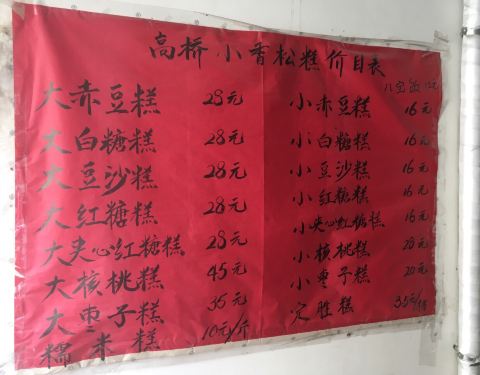 高桥小香松糕价目表
八宝饭
大赤豆糕 28元 小赤豆糕 16元
大白糖糕 28元 小白糖糕 16元
大豆沙糕 28元 小豆沙糕 16元
大红糖糕 28元 小红糖糕 16元
大夹心红糖糕 28元 小夹心红糖糕 16元
大核桃糕 45元 小核桃糕 20元
大枣子糕 35元 小枣子糕 20元
糯米糕 10元/斤 定胜糕